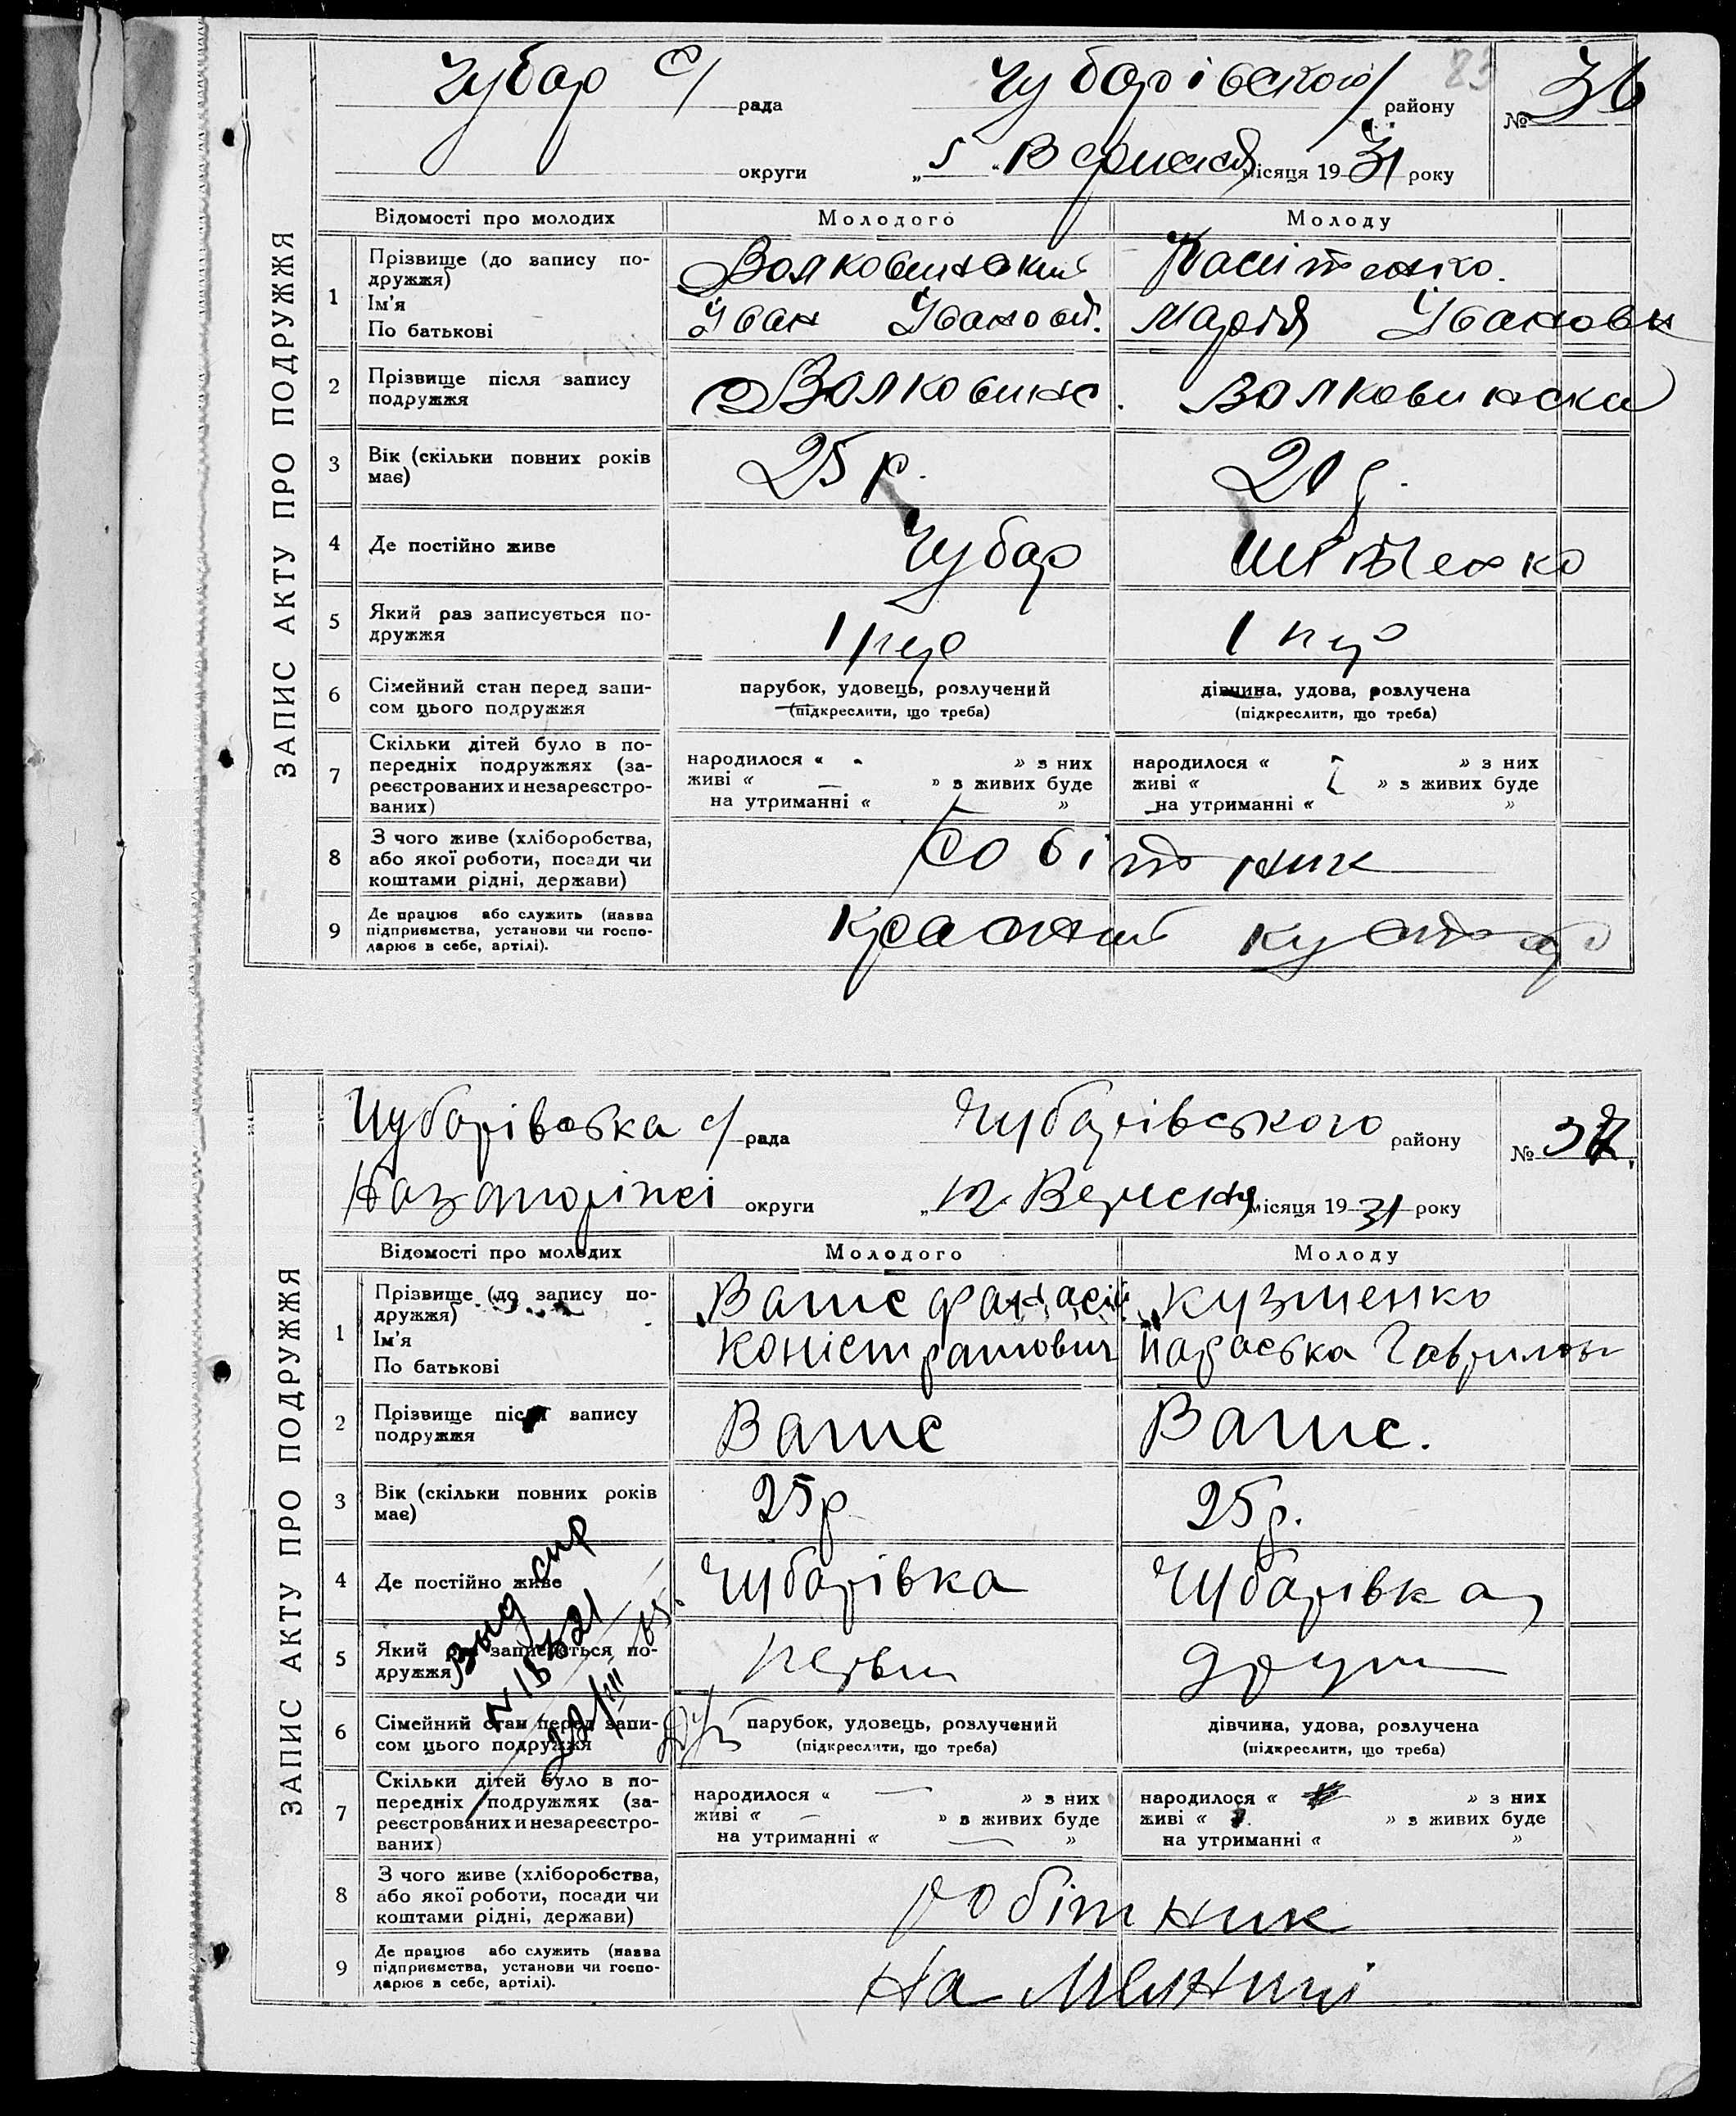 83
Чубар с/ рада Чубарівского району № 36
округи „5“ Вересня місяця 1931 року
ЗАПИС АКТУ ПРО ПОДРУЖЖЯ
Відомості про молодих Молодого Молоду
1 Прізвище (до запису по-
дружжя)
Ім'я
По батькові
Волковинский
Іван Іванович.
Марія Івановн
2 Прізвище після запису
подружжя
Волковинс. Волковински
3 Вік (скільки повних років
має)
25 р. 20 р.
4 Де постійно живе Чубар
5 Який раз записується по-
дружжя
1
1
6 Сімейний стан перед запи-
сом цього подружжя
парубок, удовець, розлучений
(підкреслити, що треба)
дівчина, удова, розлучена
(підкреслити, що треба)
7 Скільки дітей було в по-
передніх подружжях (за-
реєстрованих и незареєстро-
ваних)
народилося « » з них
живі « » з живих буде
на утриманні « »
народилося « » з них
живі « » з живих буде
на утриманні « »
8 З чого живе (хліборобства,
або якої роботи, посади чи
коштами рідні, держави)
робітник
9 Де працює або служить (назва
підприємства, установи чи госпо-
дарює в себе, артілі).
Красний кустар
Чубарівська с/ рада Чубарівського району № 37.
округи „12. Вересня місяця 1931 року
ЗАПИС АКТУ ПРО ПОДРУЖЖЯ
Відомості про молодих Молодого Молоду
1 Прізвище (до запису по-
дружжя)
Ім'я
По батькові
Ваше Фанасій
Коністратович
Кузменко
Параська Гаврилов
2 Прізвище після запису
подружжя
Ваше Ваше.
3 Вік (скільки повних років
має)
25 р 25 р.
4 Де постійно живе Чубарівка Чубарівка
5 Який раз записується по-
дружжя
первш
друг
6 Сімейний стан перед запи-
сом цього подружжя
парубок, удовець, розлучений
(підкреслити, що треба)
дівчина, удова, розлучена
(підкреслити, що треба)
7 Скільки дітей було в по-
передніх подружжях (за-
реєстрованих и незареєстро-
ваних)
народилося « » з них
живі « » з живих буде
на утриманні « »
народилося « » з них
живі « » з живих буде
на утриманні « »
8 З чого живе (хліборобства,
або якої роботи, посади чи
коштами рідні, держави)
робітник
9 Де працює або служить (назва
підприємства, установи чи госпо-
дарює в себе, артілі).
на Млинищі